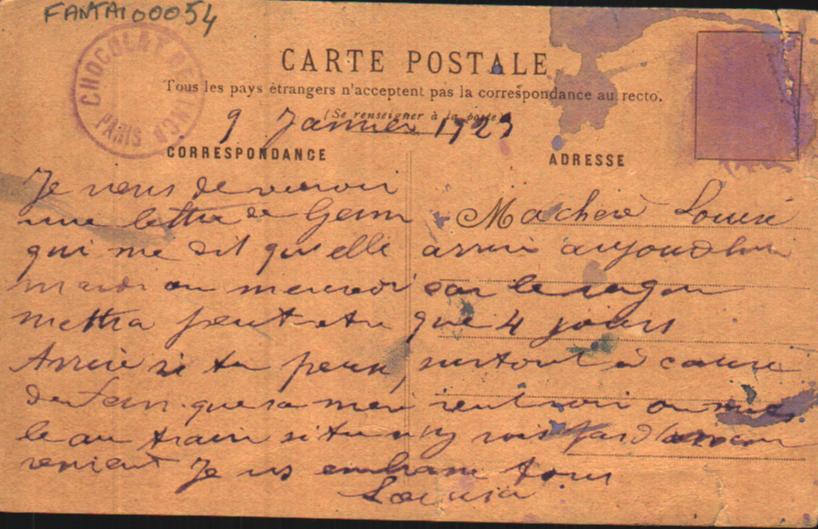 FANTAI00054
CHOCOLAT DE
PARIS
CARTE POSTALE
Tous les pays étrangers n'acceptent pas la correspondance au recto.
(Se renseigner à la poste)
9 Janvier 1923
CORRESPONDANCE
ADRESSE
Ma chere Louise
Je viens de
une lettre de
qui me dit qu'elle arrive aujourdhui
mardi ou mercredi car le wagon
mettra peut etre que 4 jours
Arrive si tu peux, surtout a cause
de que sa mere
le au train si tu n'y vois pas d'
revient Je vs embrasse tous
Louisa